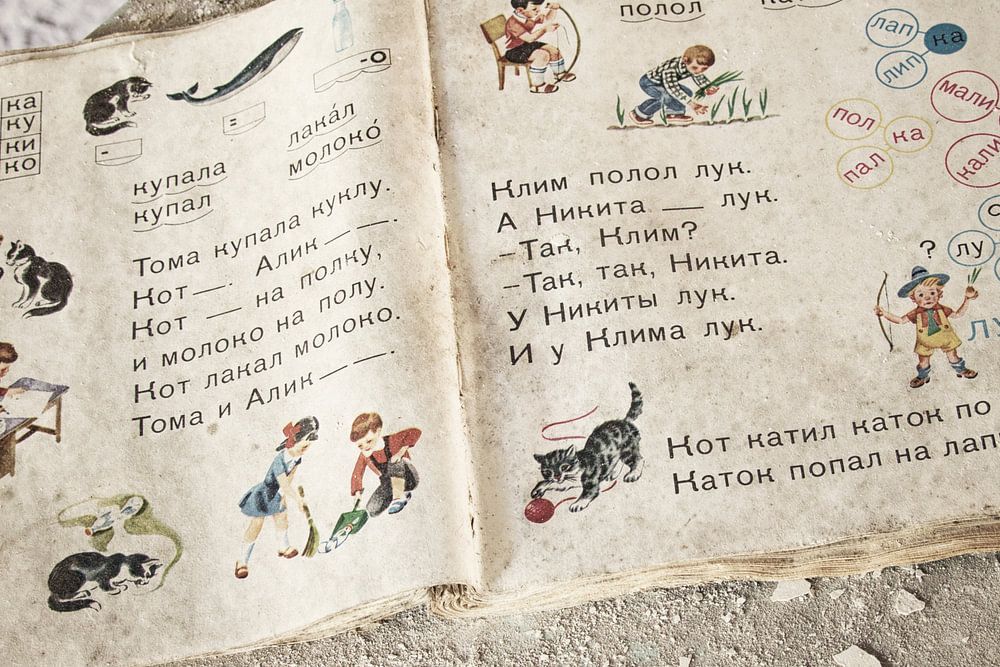 ка
ку
ки
ко
-
=
-о
купала
купал
лакáл
молокó
Тома купала куклу.
Кот —. Алик — —.
Кот — на полку,
и молоко на полу.
Кот лакал молоко.
Тома и Алик — —.
полол
Клим полол лук.
А Никита — лук.
–Так, Клим?
–Так, так, Никита.
У Никиты лук.
И у Клима лук.
Кот катил каток по
Каток попал на лап
лап
ка
лип
пол
ка
пал
мали
кали
? лу